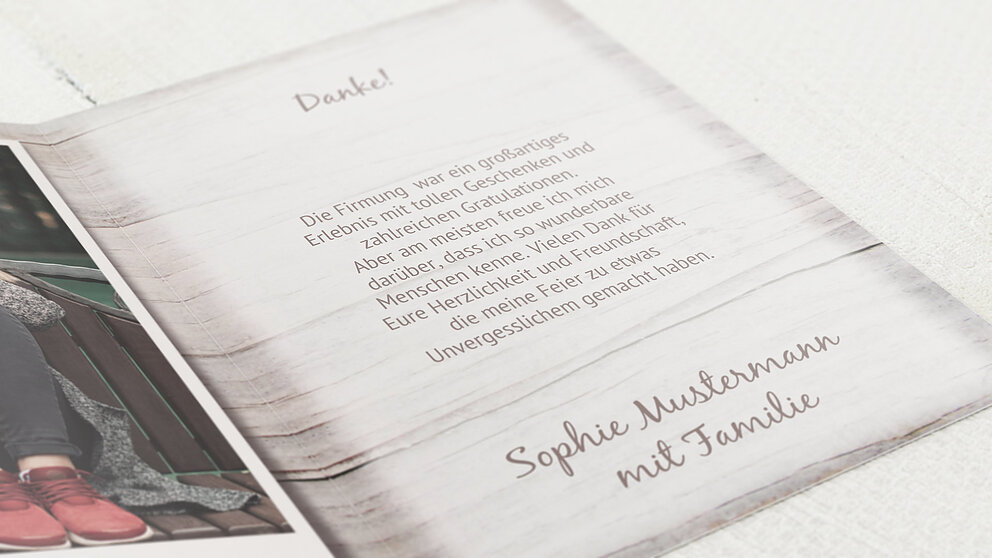 Danke!
Die Firmung war ein großartiges
Erlebnis mit tollen Geschenken und
zahlreichen Gratulationen.
Aber am meisten freue ich mich
darüber, dass ich so wunderbare
Menschen kenne. Vielen Dank für
Eure Herzlichkeit und Freundschaft,
die meine Feier zu etwas
Unvergesslichem gemacht haben.
Sophie Mustermann
mit Familie